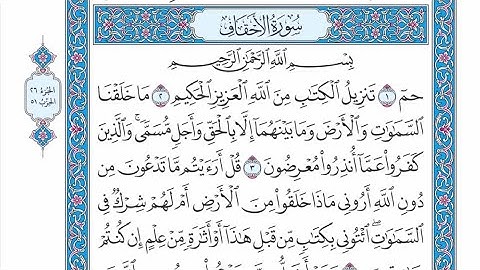 سُورَةُ الأَحْقَافِ
بِسْمِ اللَّهِ الرَّحْمَٰنِ الرَّحِيمِ
حمٓ ١ تَنزِيلُ الْكِتَابِ مِنَ اللَّهِ الْعَزِيزِ الْحَكِيمِ ٢ مَا خَلَقْنَا
السَّمَاوَاتِ وَالْأَرْضَ وَمَا بَيْنَهُمَا إِلَّا بِالْحَقِّ وَأَجَلٍ مُّسَمًّى ۚ وَالَّذِينَ
كَفَرُوا عَمَّا أُنذِرُوا مُعْرِضُونَ ٣ قُلْ أَرَءَيْتُم مَّا تَدْعُونَ مِن
دُونِ اللَّهِ أَرُونِي مَاذَا خَلَقُوا مِنَ الْأَرْضِ أَمْ لَهُمْ شِرْكٌ فِي
السَّمَاوَاتِ ۖ ائْتُونِي بِكِتَابٍ مِّن قَبْلِ هَٰذَا أَوْ أَثَارَةٍ مِّنْ عِلْمٍ إِن كُنتُمْ
الجزء ٢٦
الحزب ٥١